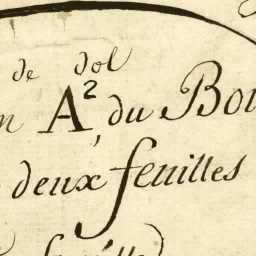 de dol
n A², du Bou
deux feuilles